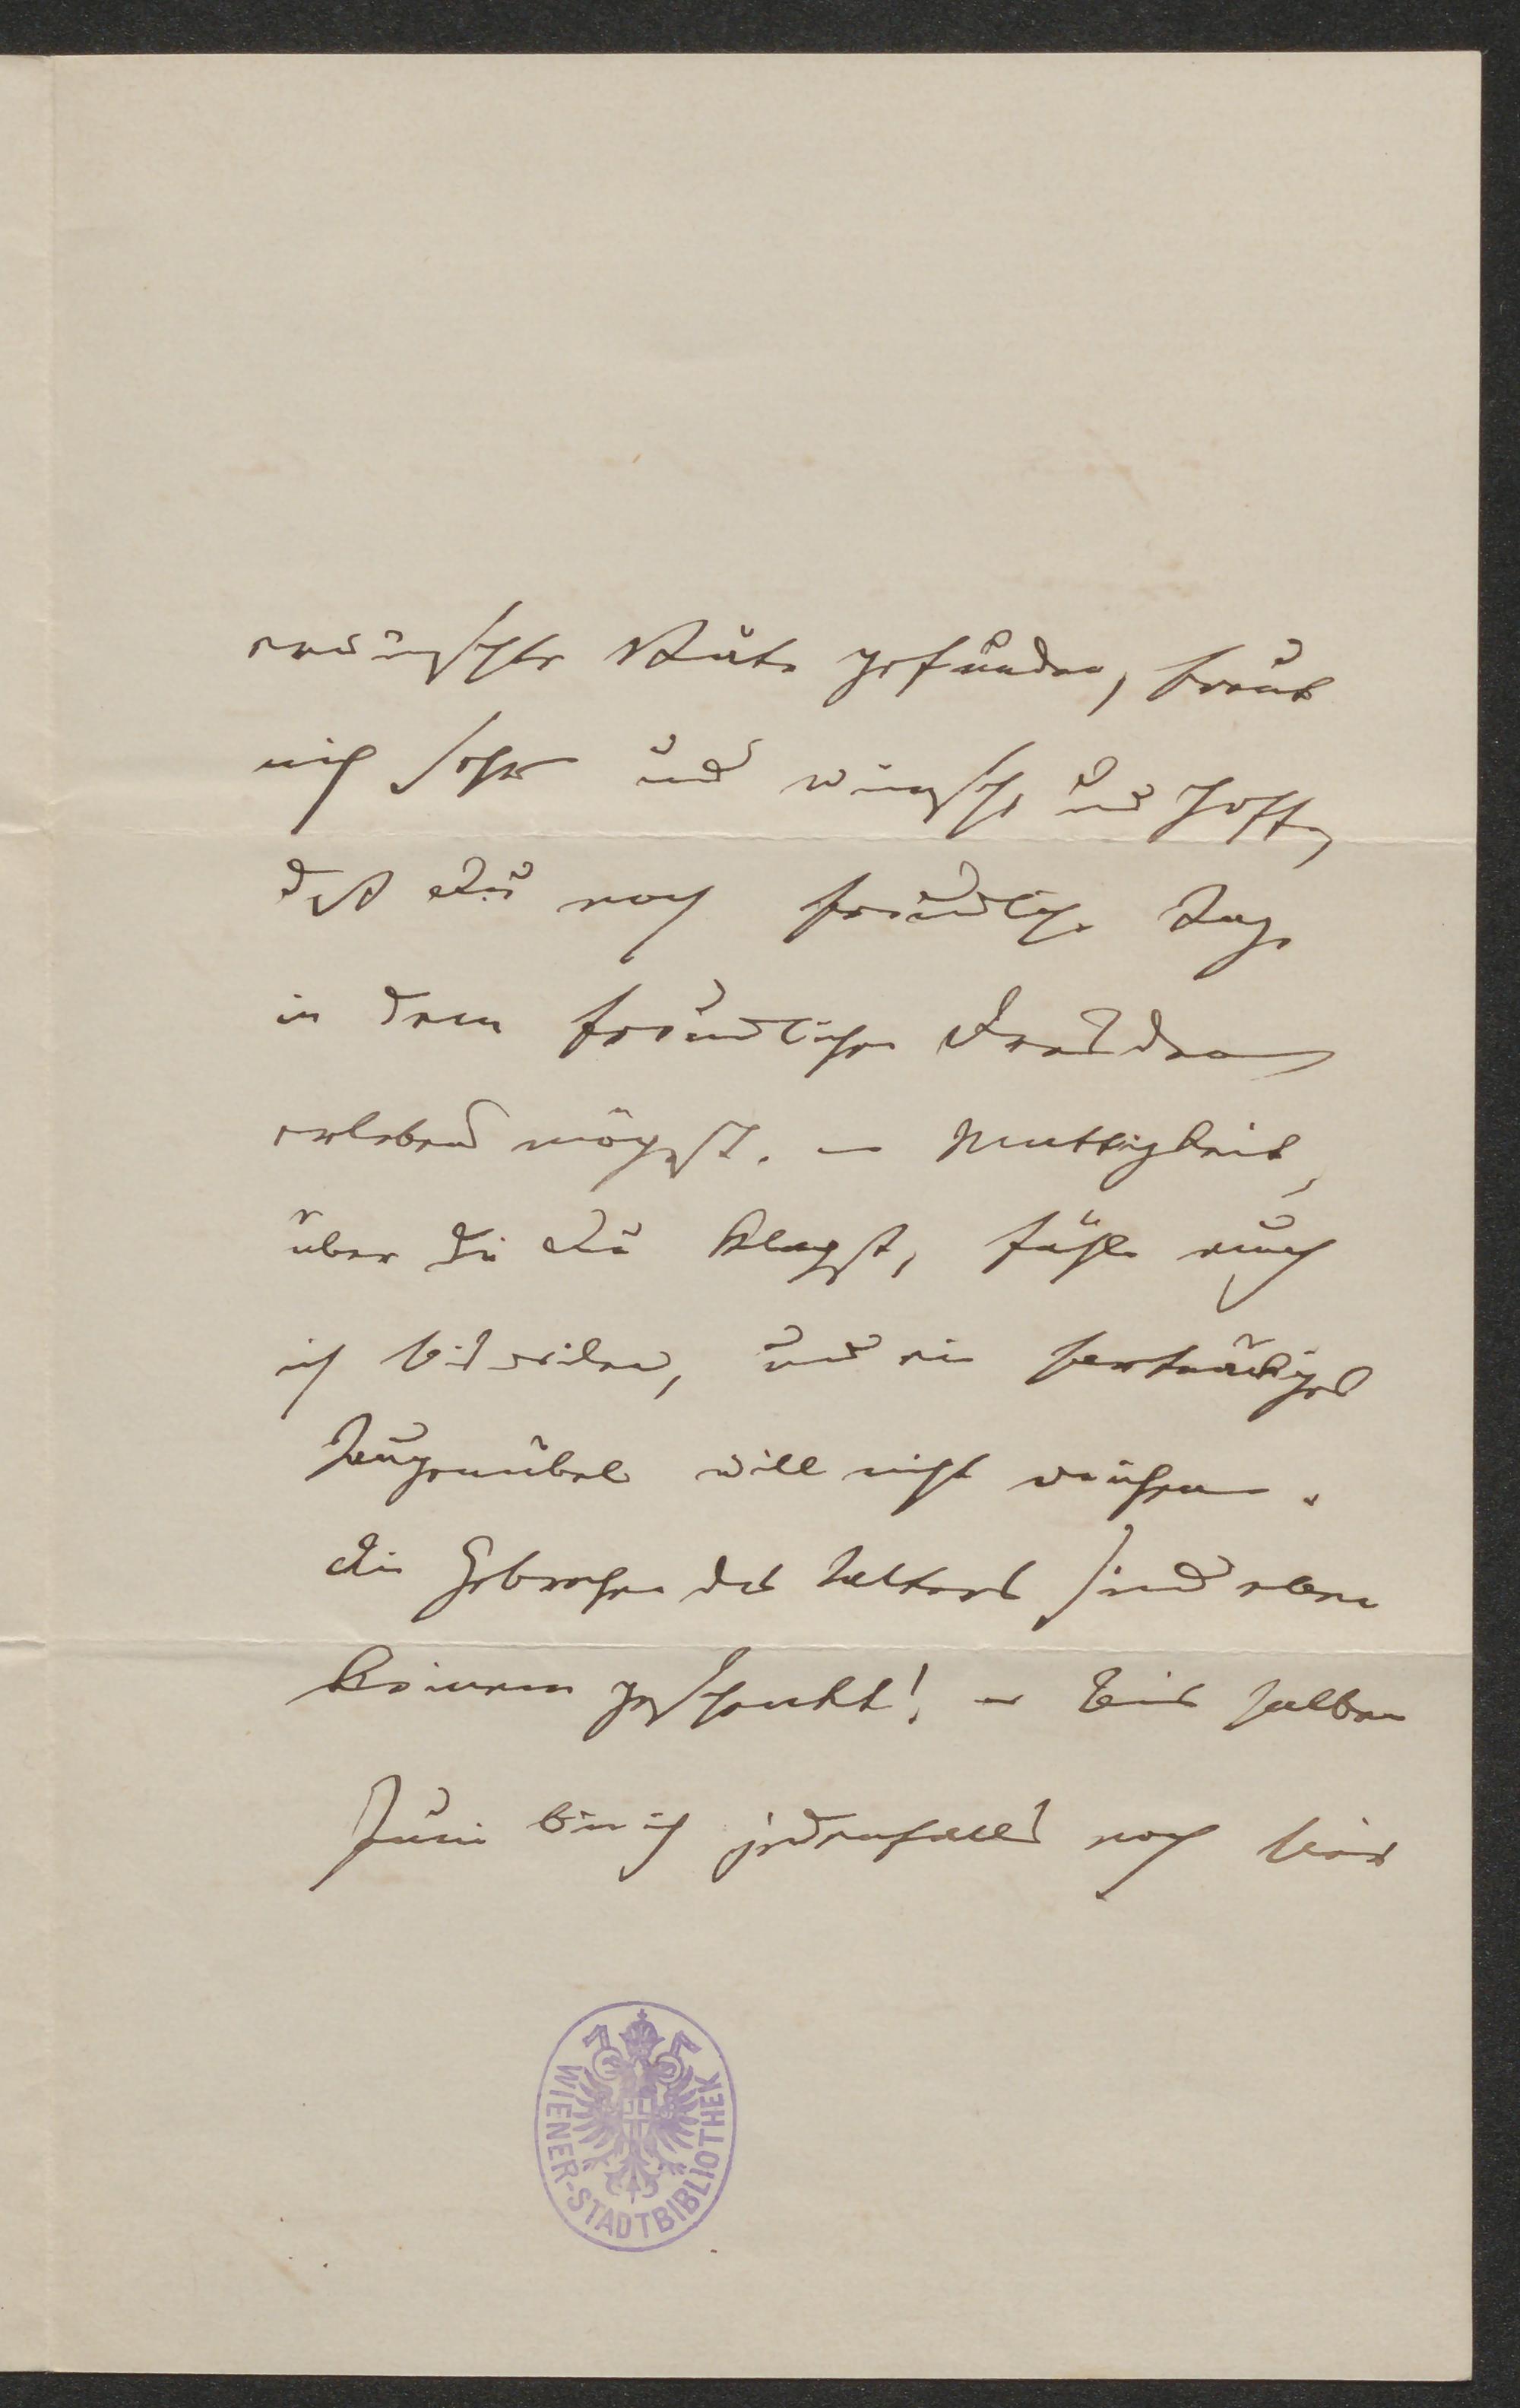 erwünschte Stätte gefunden, freut
mich sehr und wünsche und hoffe,
daß Du noch freundliche Tage
in dem freundlichen Dresden
erleben mögest. – Mattigkeit,
über die Du klagst, fühle auch
ich bisweilen, und ein hartnäckiges
Augenübel will nicht weichen.
Die Gebrechen des Alters sind eben
keinem geschenkt! – Bis halben
Juni bin ich jedenfalls noch hier
WIENER-STADTBIBLIOTHEK